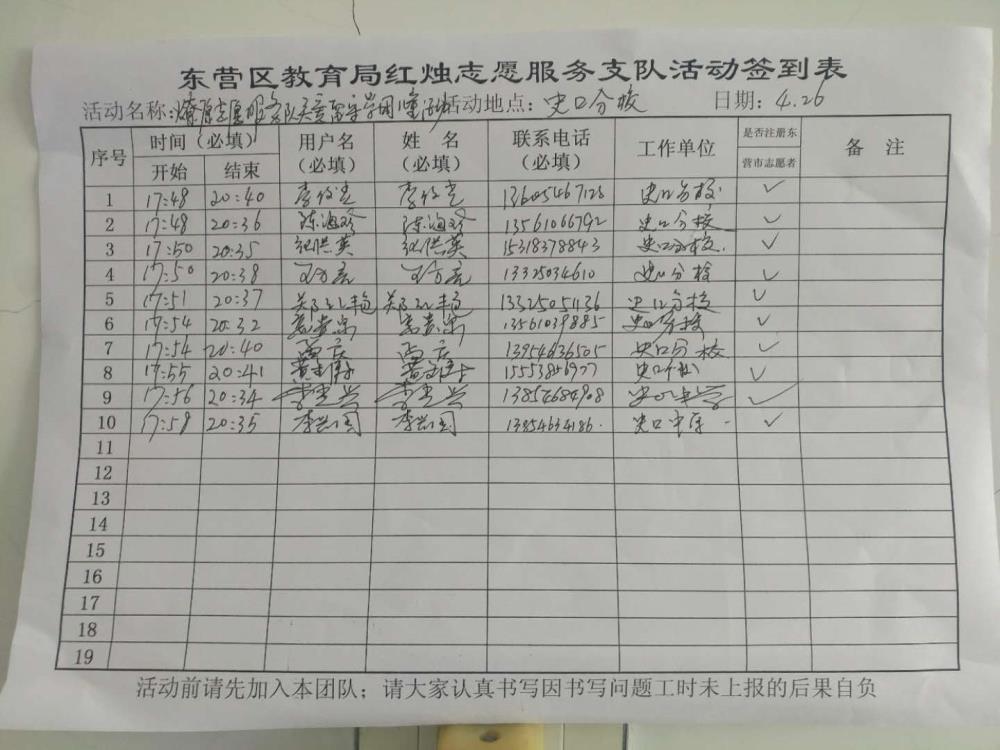 东营区教育局红烛志愿服务支队活动签到表
活动名称:燎原志愿服务队关爱留守学困儿童活动 活动地点:史口分校 日期:4.26
序号 时间(必填) 用户名(必填) 姓 名(必填) 联系电话(必填) 工作单位 是否注册东营市志愿者 备 注
开始 结束
1 17:48 20:40 13605467128 史口分校 ✓
2 17:48 20:36 陈海珍 陈海珍 13561066792 史口分校 ✓
3 17:50 20:35 张洪英 张洪英 15318378843 史口分校 ✓
4 17:50 20:38 13325034610 史口分校 ✓
5 17:51 20:37 郑红艳 郑红艳 13325051136 史口分校 ✓
6 17:54 20:32 13561039885 史口分校 ✓
7 17:54 20:40 13954636505 史口分校 ✓
8 17:55 20:41 15553856977 史口 ✓
9 17:56 20:34 13854684908 史口中学 ✓
10 17:59 20:35 李兴国 李兴国 13854634186 史口中学 ✓
11
12
13
14
15
16
17
18
19
活动前请先加入本团队;请大家认真书写因书写问题工时未上报的后果自负